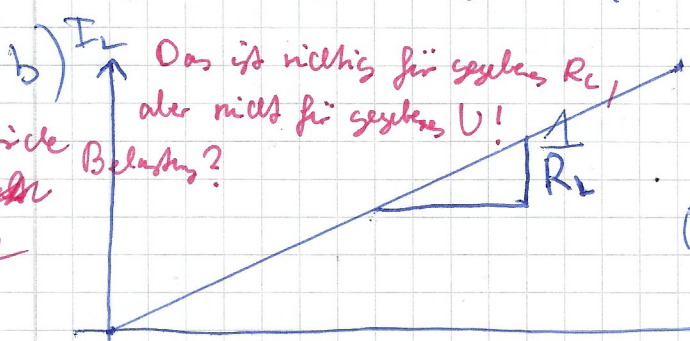 b) I_L
Das ist richtig für gegebenes R_L,
aber nicht für gegebenes U!
Belastung?
1
R_L